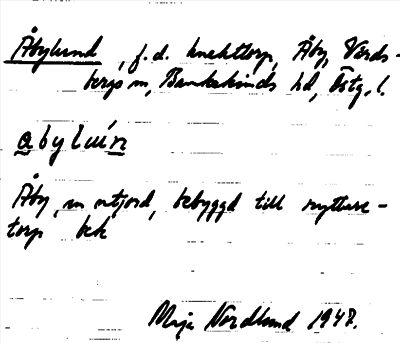 Åbylund, f.d. knekttorp, Åby, Vårds-
bergs sn, Bankekinds hd, Östg.l.
abylún
Åby, sn utjord, bebyggd till ryttare-
torp
Maja Nordlund 1948.